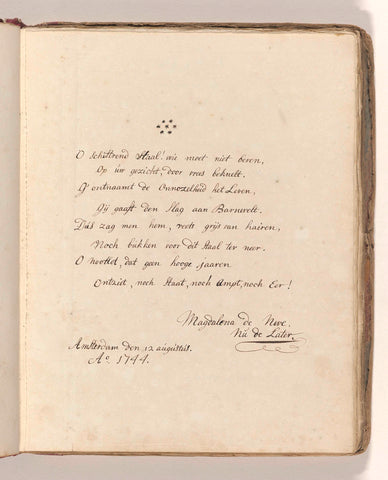 O schittrend Staal! wie moet niet beven,
Op úw gezicht, door vrees bekneld.
G'ontnaamt de Onnozelheid het Leven,
Gij gaaft den Slag aan Barnevelt.
Dús zag men hem, reets grijs van hairen,
Noch bukken voor dit Staal ter neer.
O Noodlot, dat geen hooge jaaren
Ontziet, noch Staat, noch Ampt, noch Eer!
Magdalena de Neve.
Nú de Later.
Amsterdam den 12 augústús.
Aº. 1744.